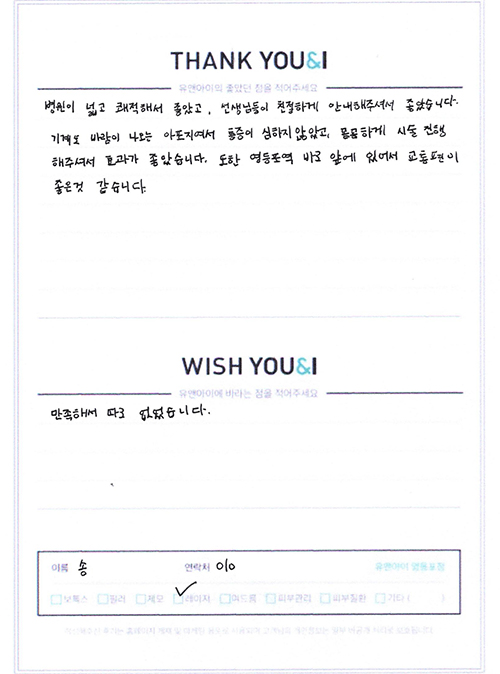 THANK YOU&I
유앤아이의 좋았던 점을 적어주세요
병원이 넓고 쾌적해서 좋았고, 선생님들이 친절하게 안내해주셔서 좋았습니다.
기계도 바람이 나오는 아포지여서 통증이 심하지않았고, 꼼꼼하게 시술 진행
해주셔서 효과가 좋았습니다. 또한 영등포역 바로 앞에 있어서 교통편이
좋은것 같습니다.
WISH YOU&I
유앤아이에 바라는 점을 적어주세요
만족해서 따로 없었습니다.
이름 송 연락처 010 유앤아이 영등포점
보톡스 필러 제모 레이저 여드름 피부관리 피부질환 기타 ( )